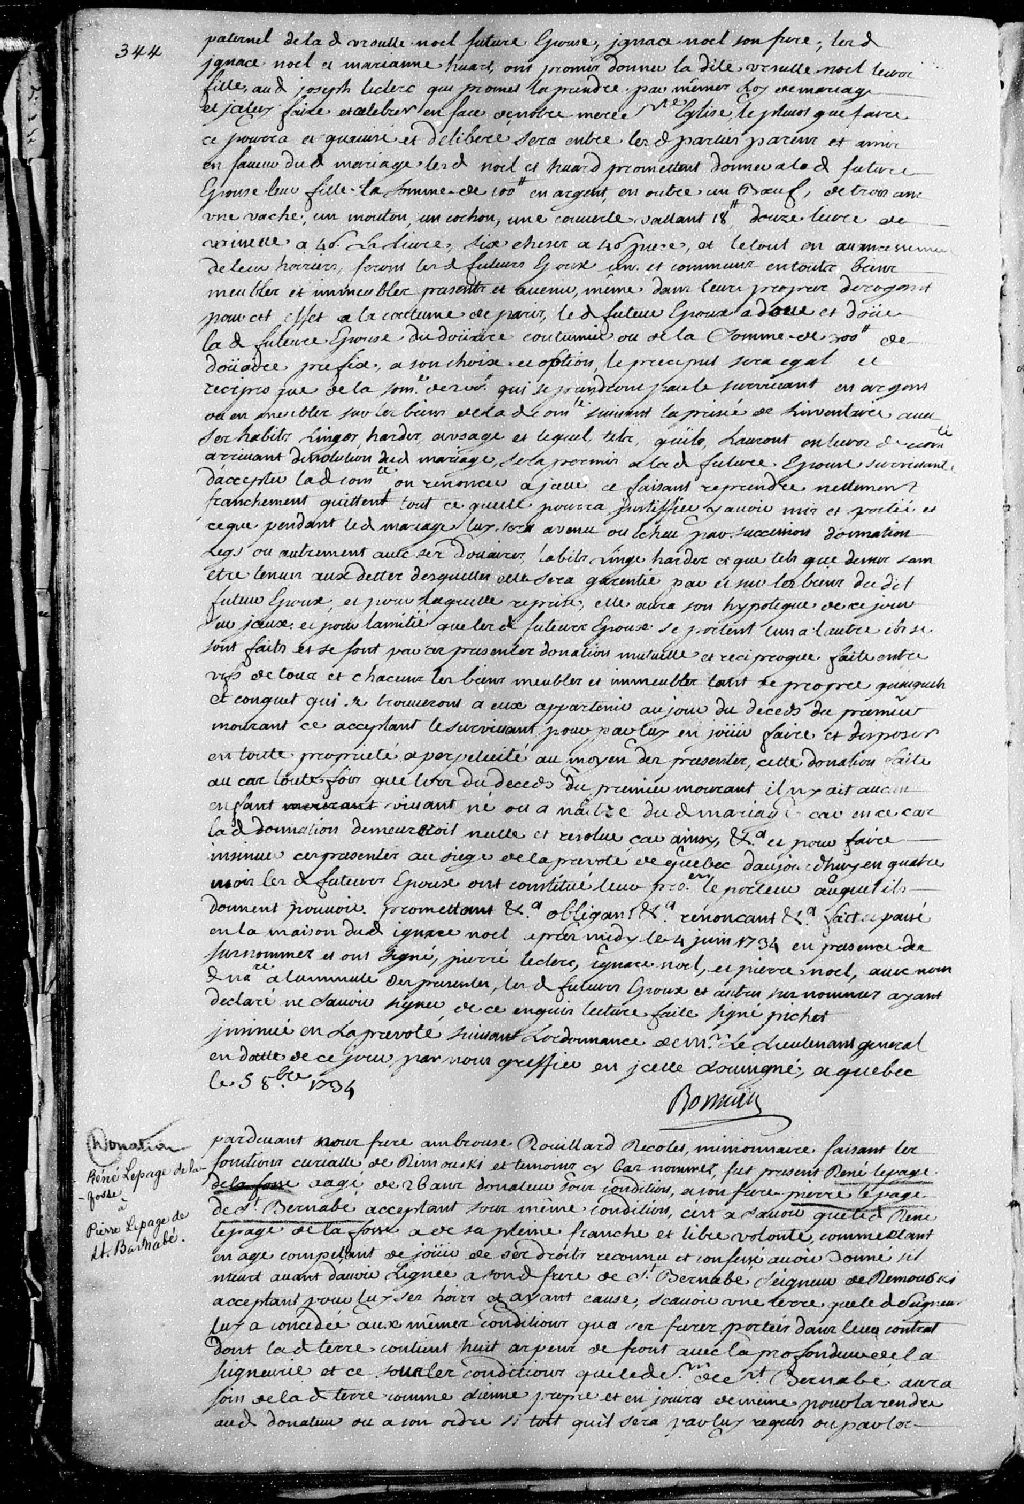 344
paternel de la d. ursulle noel future Epouse, jgnace noel son frere, lesd
jgnace noel et marianne huard, ont promis donner la dite ursulle noel leur
fille, aud joseph leclerc qui promet la prendre par mêmes loy de mariage
et jcelluy faire et celebrer en face de notre mere Ste Eglise le plutot que faire
ce pourra et qu'avisé et deliberé sera entre lesd parties parens et amis
en faveur dud mariage lesd noel et huard promettent donner a lad future
Epouse leur fille la somme de 100# en argent, en outre un Boeuf, de trois ans
une vache, un mouton, un cochon, une couverte vallant 18# douze livre de
a 40s La livre, six chesse a 40s piece, et le tout en avancement
de leur hoiries, seront lesd futurs Epoux uns et communs en toutes biens
meubles et immeubles presents et avenir, même dans leurs propres derogeant
pour cet effet a la coutume de paris, le d futeur Epoux a doué et doüe
la d. future Epouse du doüaire coutumier ou de la Somme de 300# de
doüaire prefix, a son choix et option, le preciput sera egal et
reciproque de la som.e de qui se prendront par le survivant en argent
ou en meubles sur les biens de lad com.té suivant la prisée de L'inventaire avec
ses habits Linges, hardes, a usage et tequel tels, qu'ils, seauront en leurs d. com.té
arrivant dissolution dud mariage, sera permis a lad future Epouse survivante
d'accepter lad com.té ou renoncer a jcelle ce faisant reprendre nettement
franchement quittent tout ce quelle pourra justiffier y avoir mis et porté et
ce que pendant led mariage luy sera avenu ou echeu par succession donnation
Legs ou autrement avec ses doüaires, habits linge hardes et que tels que dessus sans
être tenus aux dettes desquelles elle sera garentie par et sur les biens du dit
futeur Epoux, et pour laquelle reprise, elle aura son hypoteque de ce jour
sur jceux, et pour lamitié que les d futeurs Epoux se portent l'un a l'autre ils se
sont faits et se font par ces presentes donation mutuelle et reciproque faite entre
vifs de tous et chacuns les biens meubles et immeubles tant de propre qu'acquets
et conquet qui se trouveront a eux appartenir au jour du deceds du premier
mourant ce acceptant le survivant pour par luy en joüir faire et disposer
en toute proprieté a perpetuité au moyen des presentes, cette donation faite
au cas toute fois que lors du deceds du premier mourant il ny ait aucun
enfant vivant ne ou a naitre du d mariage car en ce cas
la d donnation demeureroit nulle et resolue car ainsy, &.a et pour faire
insinuer ces presentes au siege de la prevoté de quebec d'aujourdhuy en quatre
mois les d futeurs Epoux ont constitué leur pro.eur le porteur auquel ils
donnent pouvoir promettant &.a obligeant &.a rénoncant &.a fait et passé
en la maison dud ignace noel apres midy le 4 juin 1734 en presence de
surnommez et ont signé, pierre leclerc, ignace noel, et pierre noel, avec nous
d no.re a la minute des presentes, les d futurs Epoux et autres surnommez ayant
declaré ne sçavoir signer de ce enquis lecture faite signé pichet
jnsinué en La prevoté suivant Lordonnance de Mr. Le Lieutenant general
en datte de ce jour, par nous greffier en jcelle soussigné, a quebec
le 5 8bre 1734
Donation
René Lepage de la
fosse
à
Pierre Lepage de
St. Barnabé.
pardevant nous frere ambroise Rouillard Recolet, missionnaire faisant les
fonctions curialle de Rimouski et temoins cy bas nommés, fut present René lepage
de la fosse agé de 26 ans donateur sous conditions, a son frere pierre lepage
de St Bernabé acceptant sous même conditions, cest a sçavoir que led René
lepage de la fosse a de sa pleine franche et libre volonté, comme etant
en age competant de joüir de ses droits reconnu et confessé avoir donné sil
meurt avant davoir Lignée a sond frere de St Bernabé seigneur de Remouski
acceptant pour luy ses hoirs et ayant cause, scavoir une terre que led Seigneur
luy a concedée aux mêmes conditions qu'a ses freres portées dans leurs contrat
dont lad terre contient huit arpens de front avec la profondeur de la
seigneurie et ce sous les conditions que led sr. de St. Bernabé aura
soin de la d terre comme sienne propre et en jouira de meme pour la rendre
aud donateur ou a son ordre si tost qu'il sera par luy requis ou par los